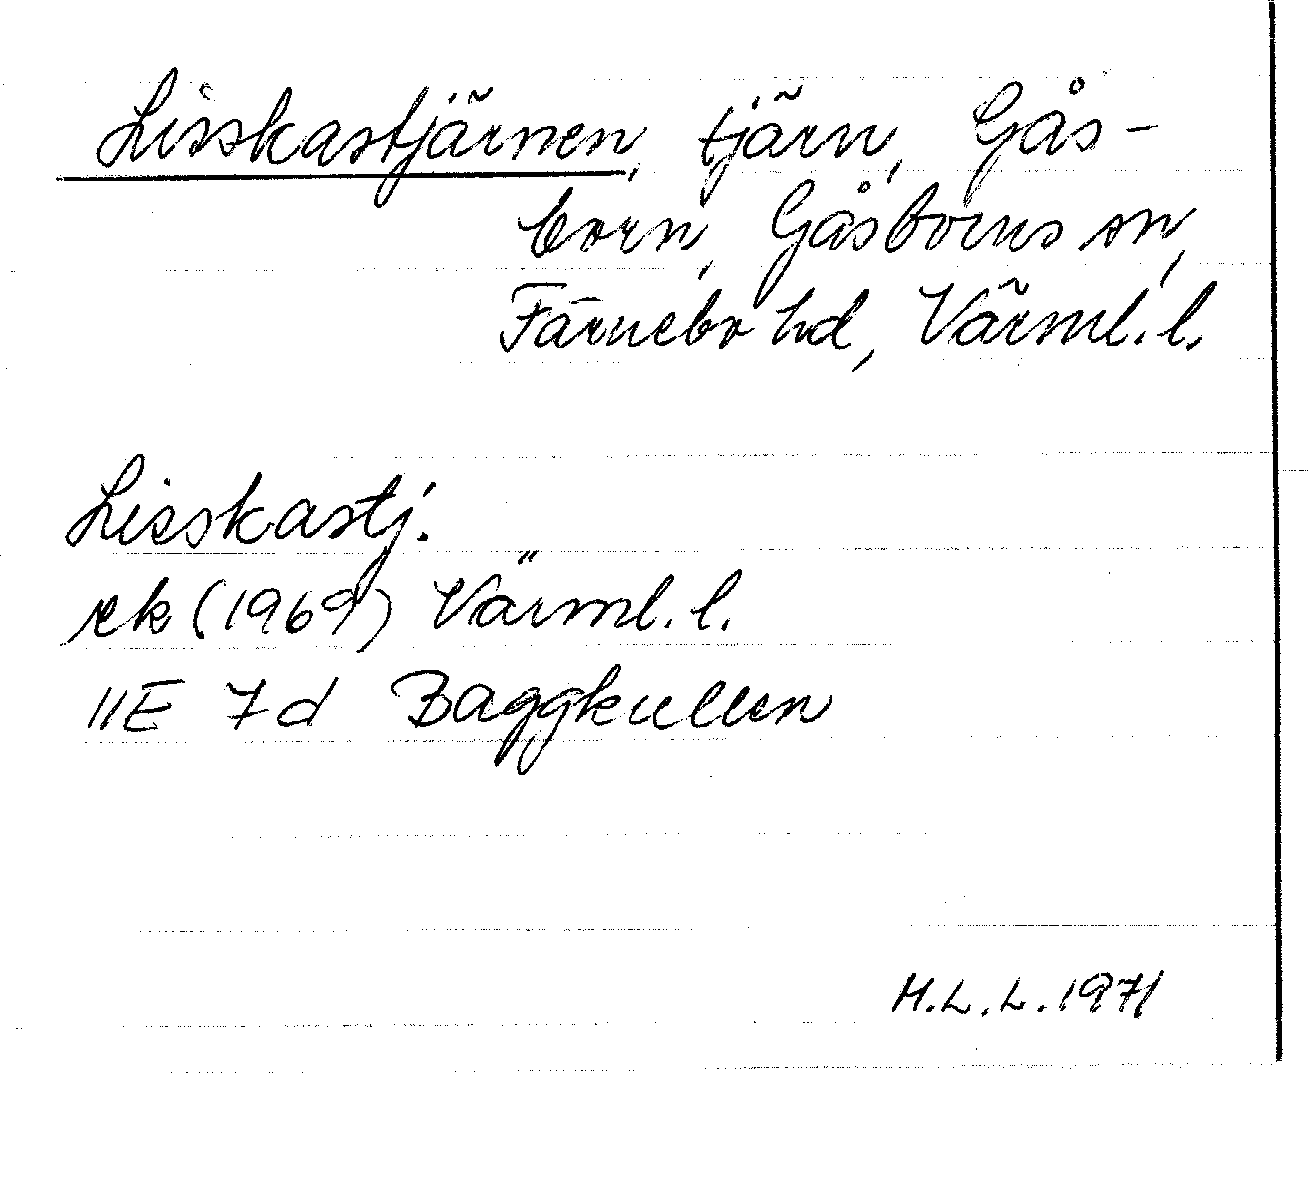 Lisskastjärnen, tjärn, Gås-
born, Gåsborns sn,
Färnebo hd, Värml. l.
Lisskastj.
ek (1969) Värml. l.
11E 7d Baggkullen
H.L.L. 1971